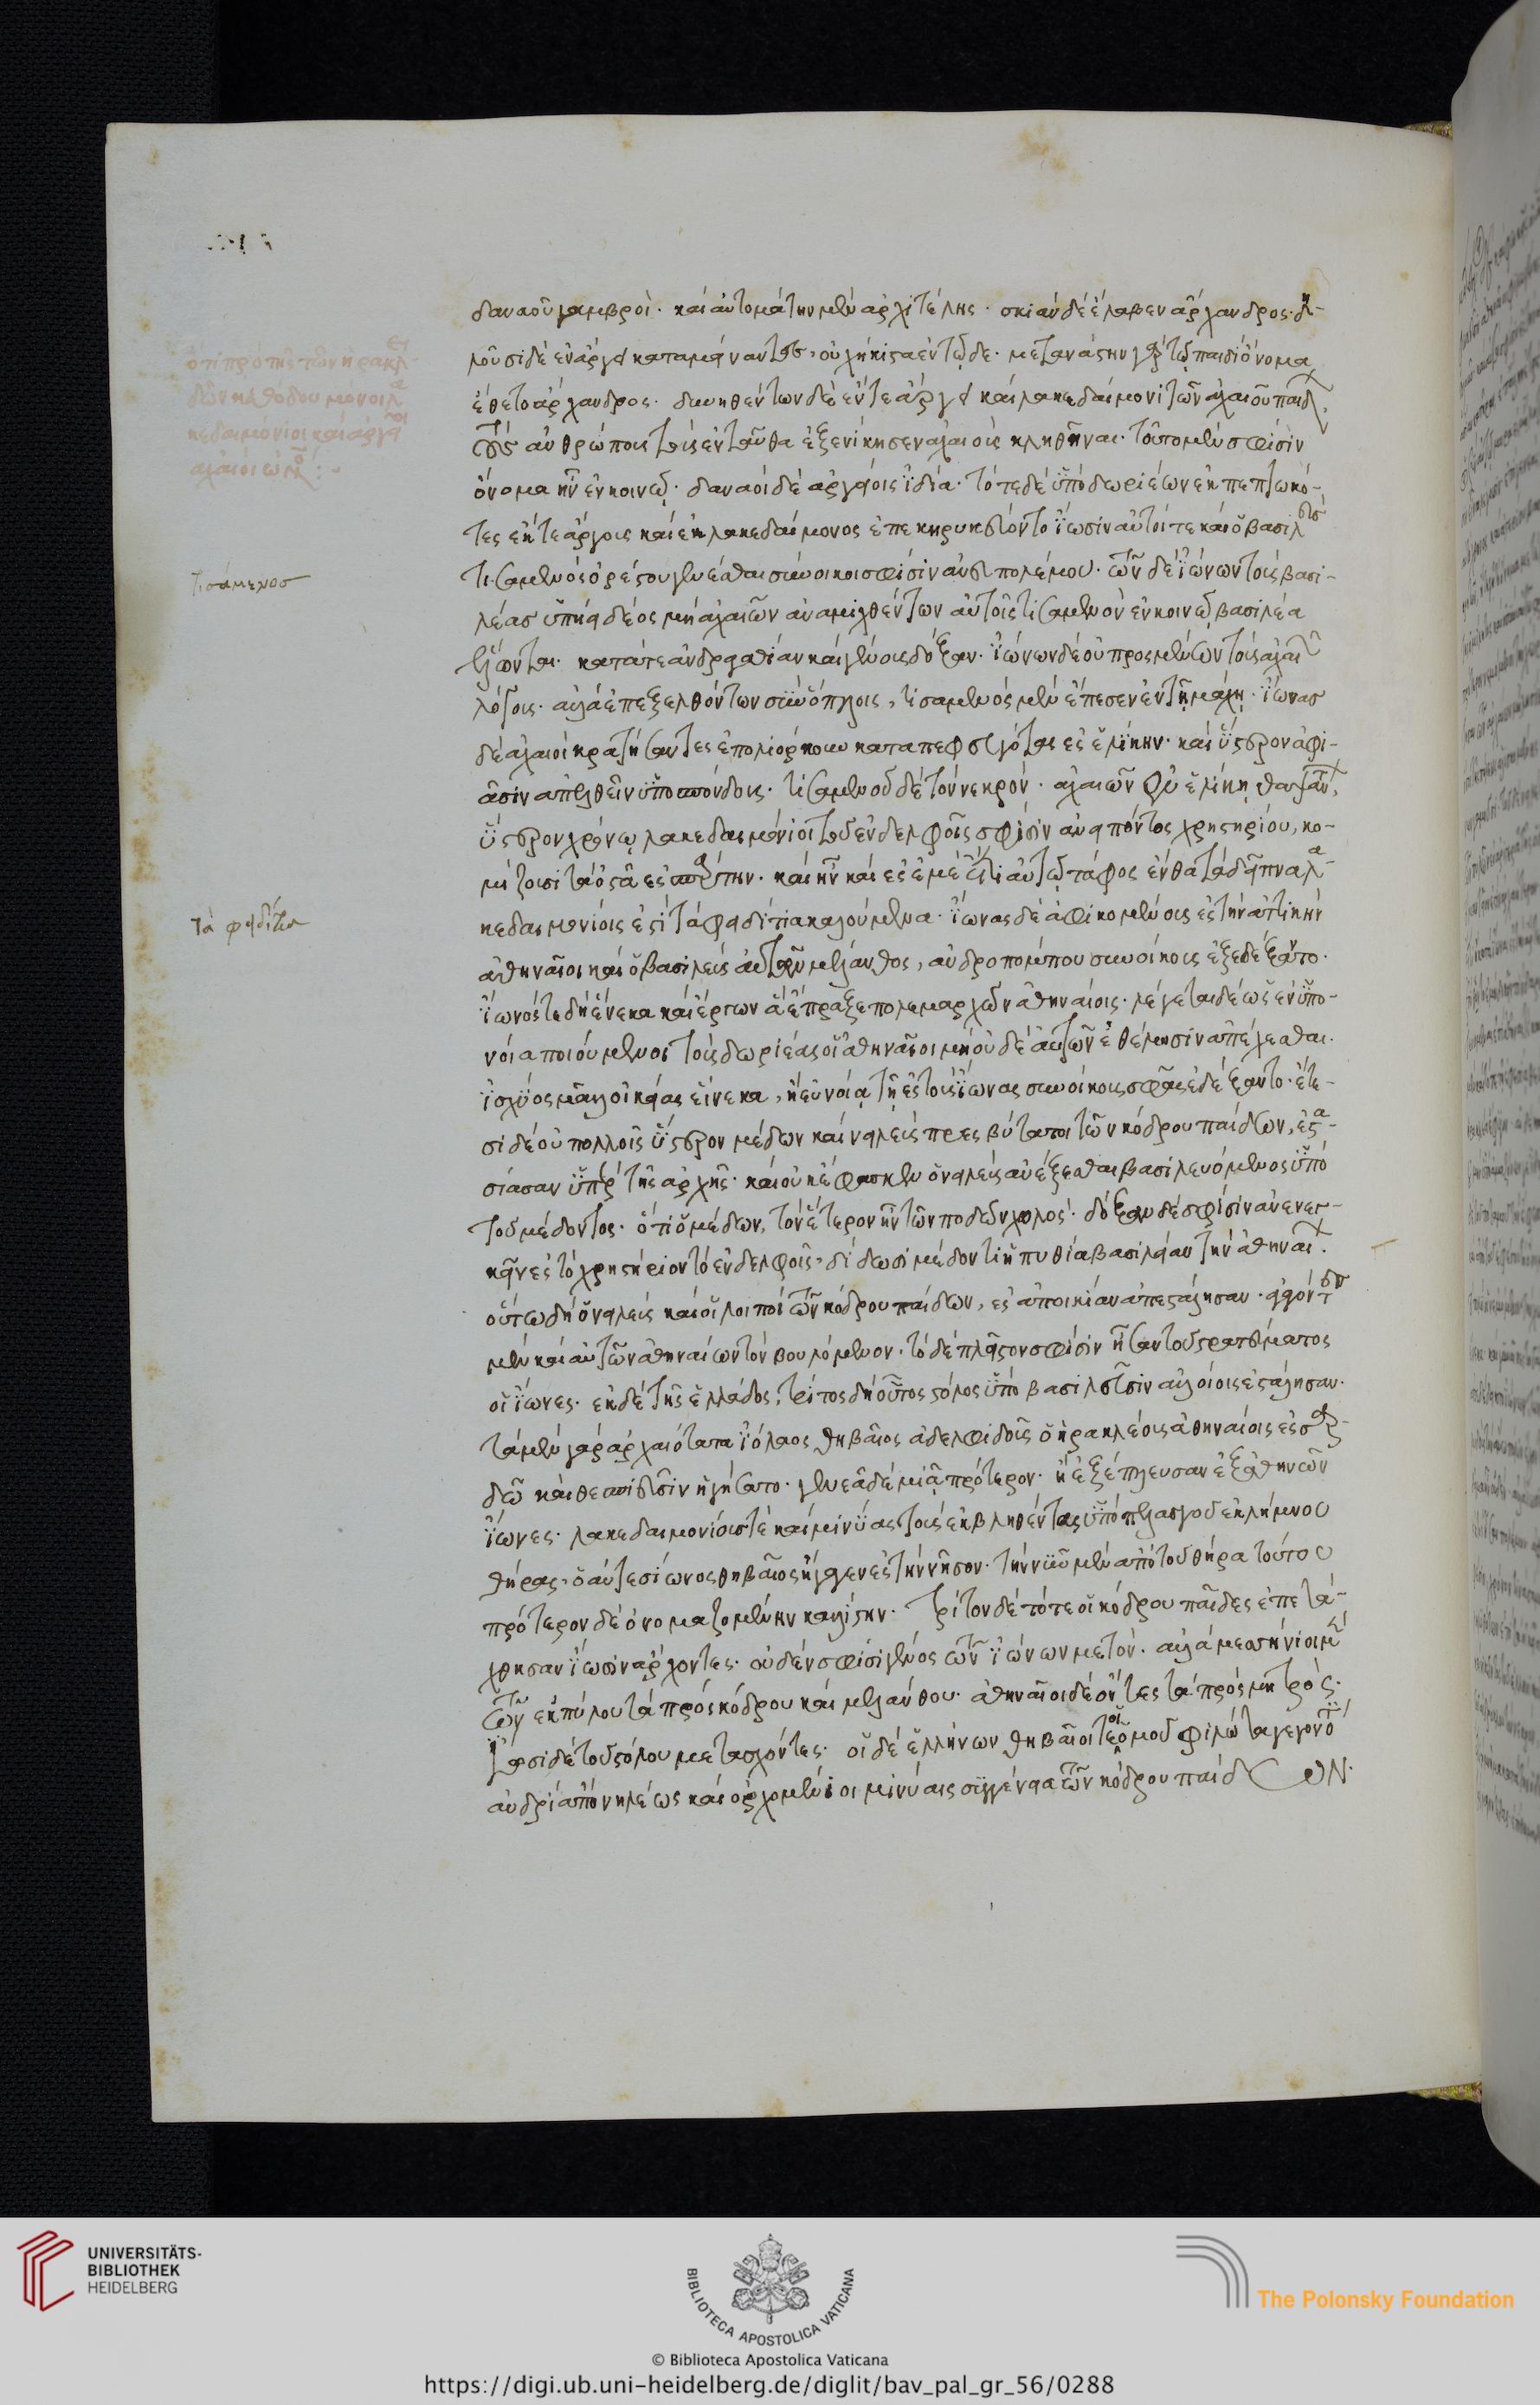 δαναοῦ γαμβροὶ· καὶ αὐτομάτην μὲν ἀρχιτέλης· σκιὰν δὲ ἔλαβεν ἄρχανδρος· δη-
λοῦσι δὲ ἐν ἄργει καταμείναντες, οὐχ ἥκιστα ἐν τῷδε· μετανάστην γὰρ τῷ παιδὶ ὄνομα
ἔθετο ἄρχανδρος· δυνηθέντων δὲ ἔν τε ἄργει καὶ λακεδαίμονι τῶν ἀχαιοῦ παίδ
τοὺς ἀνθρώπους τοὺς ἐνταῦθα ἐξενίκησεν ἀχαιοὺς κληθῆναι· τοῦτο μὲν σφίσιν
ὄνομα ἦν ἐν κοινῷ· δαναοὶ δὲ ἀργείοις ἰδία· τότε δὲ ὑπὸ δωριέων ἐκπεπτωκό-
τες ἔκ τε ἄργους καὶ ἐκ λακεδαίμονος ἐπεκηρυκεύοντο ἴωσιν αὐτοί τε καὶ ὁ βασιλεὺς
τισαμενὸς ὀρέστου γενέσθαι σύνοικοι σφίσιν ἄνευ πολέμου· τῶν δὲ ἰώνων τοὺς βασι-
λέας ὑπήει δέος μὴ ἀχαιῶν ἀναμιχθέντων αὐτοῖς τισαμενὸν ἐν κοινῷ βασιλέα
ἕλωνται· κατά τε ἀνδραγαθίαν καὶ γένους δόξαν· ἰώνων δὲ οὐ προσεμένων τοὺς ἀχαι
λόγους· ἀλλὰ ἐπεξελθόντων σὺν ὅπλοις, τισαμενὸς μὲν ἔπεσεν ἐν τῇ μάχῃ· ἴωνας
δὲ ἀχαιοὶ κρατήσαντες ἐπολιόρκουν καταπεφευγότας ἐς ἑλίκην· καὶ ὕστερον ἀφι-
ᾶσιν ἀπελθεῖν ὑποσπόνδους· τισαμενοῦ δὲ τὸν νεκρόν· ἀχαιῶν ἐν ἑλίκῃ θαψάντ
ὕστερον χρόνῳ λακεδαιμόνιοι τοῦ ἐν δελφοῖς σφίσιν ἀνειπόντος χρηστηρίου, κο-
μίζουσι τὰ ὀστᾶ ἐς σπάρτην· καὶ ἦν καὶ ἐς ἐμὲ ἔτι αὐτῷ τάφος ἔνθα τὰ δεῖπνα λα-
κεδαιμονίοις ἐστὶ τὰ φειδίτια καλούμενα· ἴωνας δὲ ἀφικομένους ἐς τὴν ἀττικὴν
ἀθηναῖοι καὶ ὁ βασιλεὺς αὐτῶν μέλανθος, ἀνδροπόμπου συνοίκους ἐξεδέξαντο·
ἴωνός τε δὴ ἕνεκα καὶ ἔργων ἃ ἔπραξε πολεμαρχῶν ἀθηναίοις· λέγεται δὲ ὡς ἐν ὑπο-
νοία ποιούμενοι τοὺς δωριέας οἱ ἀθηναῖοι μὴ οὐδὲ αὐτῶν ἐθέλησιν ἀπέχεσθαι·
ἰσχύος μᾶλλον οἰκείας εἵνεκα, ἢ εὐνοίᾳ τῇ ἐς τοὺς ἴωνας συνοίκους σφᾶς ἐδέξαντο· ἔτε-
σι δὲ οὐ πολλοῖς ὕστερον μέδων καὶ νειλεὺς πρεσβύτατοι τῶν κόδρου παίδων, ἐστα-
σίασαν ὑπὲρ τῆς ἀρχῆς· καὶ οὐκ ἔφασκεν ὁ νειλεὺς ἀνέξεσθαι βασιλευόμενος ὑπὸ
τοῦ μέδοντος· ὅτι ὁ μέδων, τὸν ἕτερον ἦν τῶν ποδῶν χωλός· δόξαν δέ σφισιν ἀνενεγ-
κεῖν ἐς τὸ χρηστήριον τὸ ἐν δελφοῖς· δίδωσι μέδοντι ἡ πυθία βασιλείαν τὴν ἀθηναί·
οὕτω δὴ ὁ νειλεὺς καὶ οἱ λοιποὶ τῶν κόδρου παίδων, ἐς ἀποικίαν ἀπεστάλησαν· ἀγόντ
μὲν καὶ αὐτῶν ἀθηναίων τὸν βουλόμενον· τὸ δὲ πλεῖστον σφίσιν ἦσαν τοῦ στρατεύματος
οἱ ἴωνες· ἐκ δὲ τῆς ἑλλάδος, τρίτος δὴ οὗτος στόλος ὑπὸ βασιλεῦσιν ἀλλοίοις ἐστάλησαν·
τὰ μὲν γὰρ ἀρχαιότατα ἰόλαος θηβαῖος ἀδελφιδοῦς ὁ ἡρακλέους ἀθηναίοις ἐς σαρ-
δὼ καὶ θεσπιεῦσιν ἡγήσατο· γενεᾶ δὲ μιᾷ πρότερον· ἢ ἐξέπλευσαν ἐξ ἀθηνῶν
ἴωνες· λακεδαιμονίους τε καὶ μινύας τοὺς ἐκβληθέντας ὑπὸ πελασγοῦ ἐκ λήμνου
θήρας, ὁ αὐτεσίωνος θηβαῖος ἤγαγεν ἐς τὴν νῆσον· τὴν νῦν μὲν ἀπὸ τοῦ θήρα τούτου
πρότερον δὲ ὀνομαζομένην καλίστην· τρίτον δὲ τότε οἱ κόδρου παῖδες ἐπετά-
χθησαν ἴωσιν ἄρχοντες· οὐδέν σφισι γένος τῶν ἰώνων μετόν· ἀλλὰ μεσσήνιοι μὲν
τῶν ἐκ πύλου τὰ πρὸς κόδρου καὶ μελάνθου· ἀθηναῖοι δὲ ὄντες τὰ πρὸς μητρός·
ἴωσι δὲ τοῦ στόλου μετασχόντες· οἵδε ἑλλήνων θηβαῖοί τε οἱ ὁμοῦ φιλώτα γεγονότ
ἀνδρὶ ἀπὸ νηλέως καὶ ὀρχομένιοι μινύαις συγγένεια τῶν κόδρου παίδων·
ὅτι πρὸ τῆς τῶν ἡρακλει
δῶν καθόδου μόνοι λα
κεδαιμόνιοι καὶ ἀργεῖοι
ἀχαιοὶ ἐκαλοῦ:
τισάμενος
τὰ φειδίτια
UNIVERSITÄTS-
BIBLIOTHEK
HEIDELBERG
BIBLIOTECA APOSTOLICA VATICANA
The Polonsky Foundation
© Biblioteca Apostolica Vaticana
https://digi.ub.uni-heidelberg.de/diglit/bav_pal_gr_56/0288